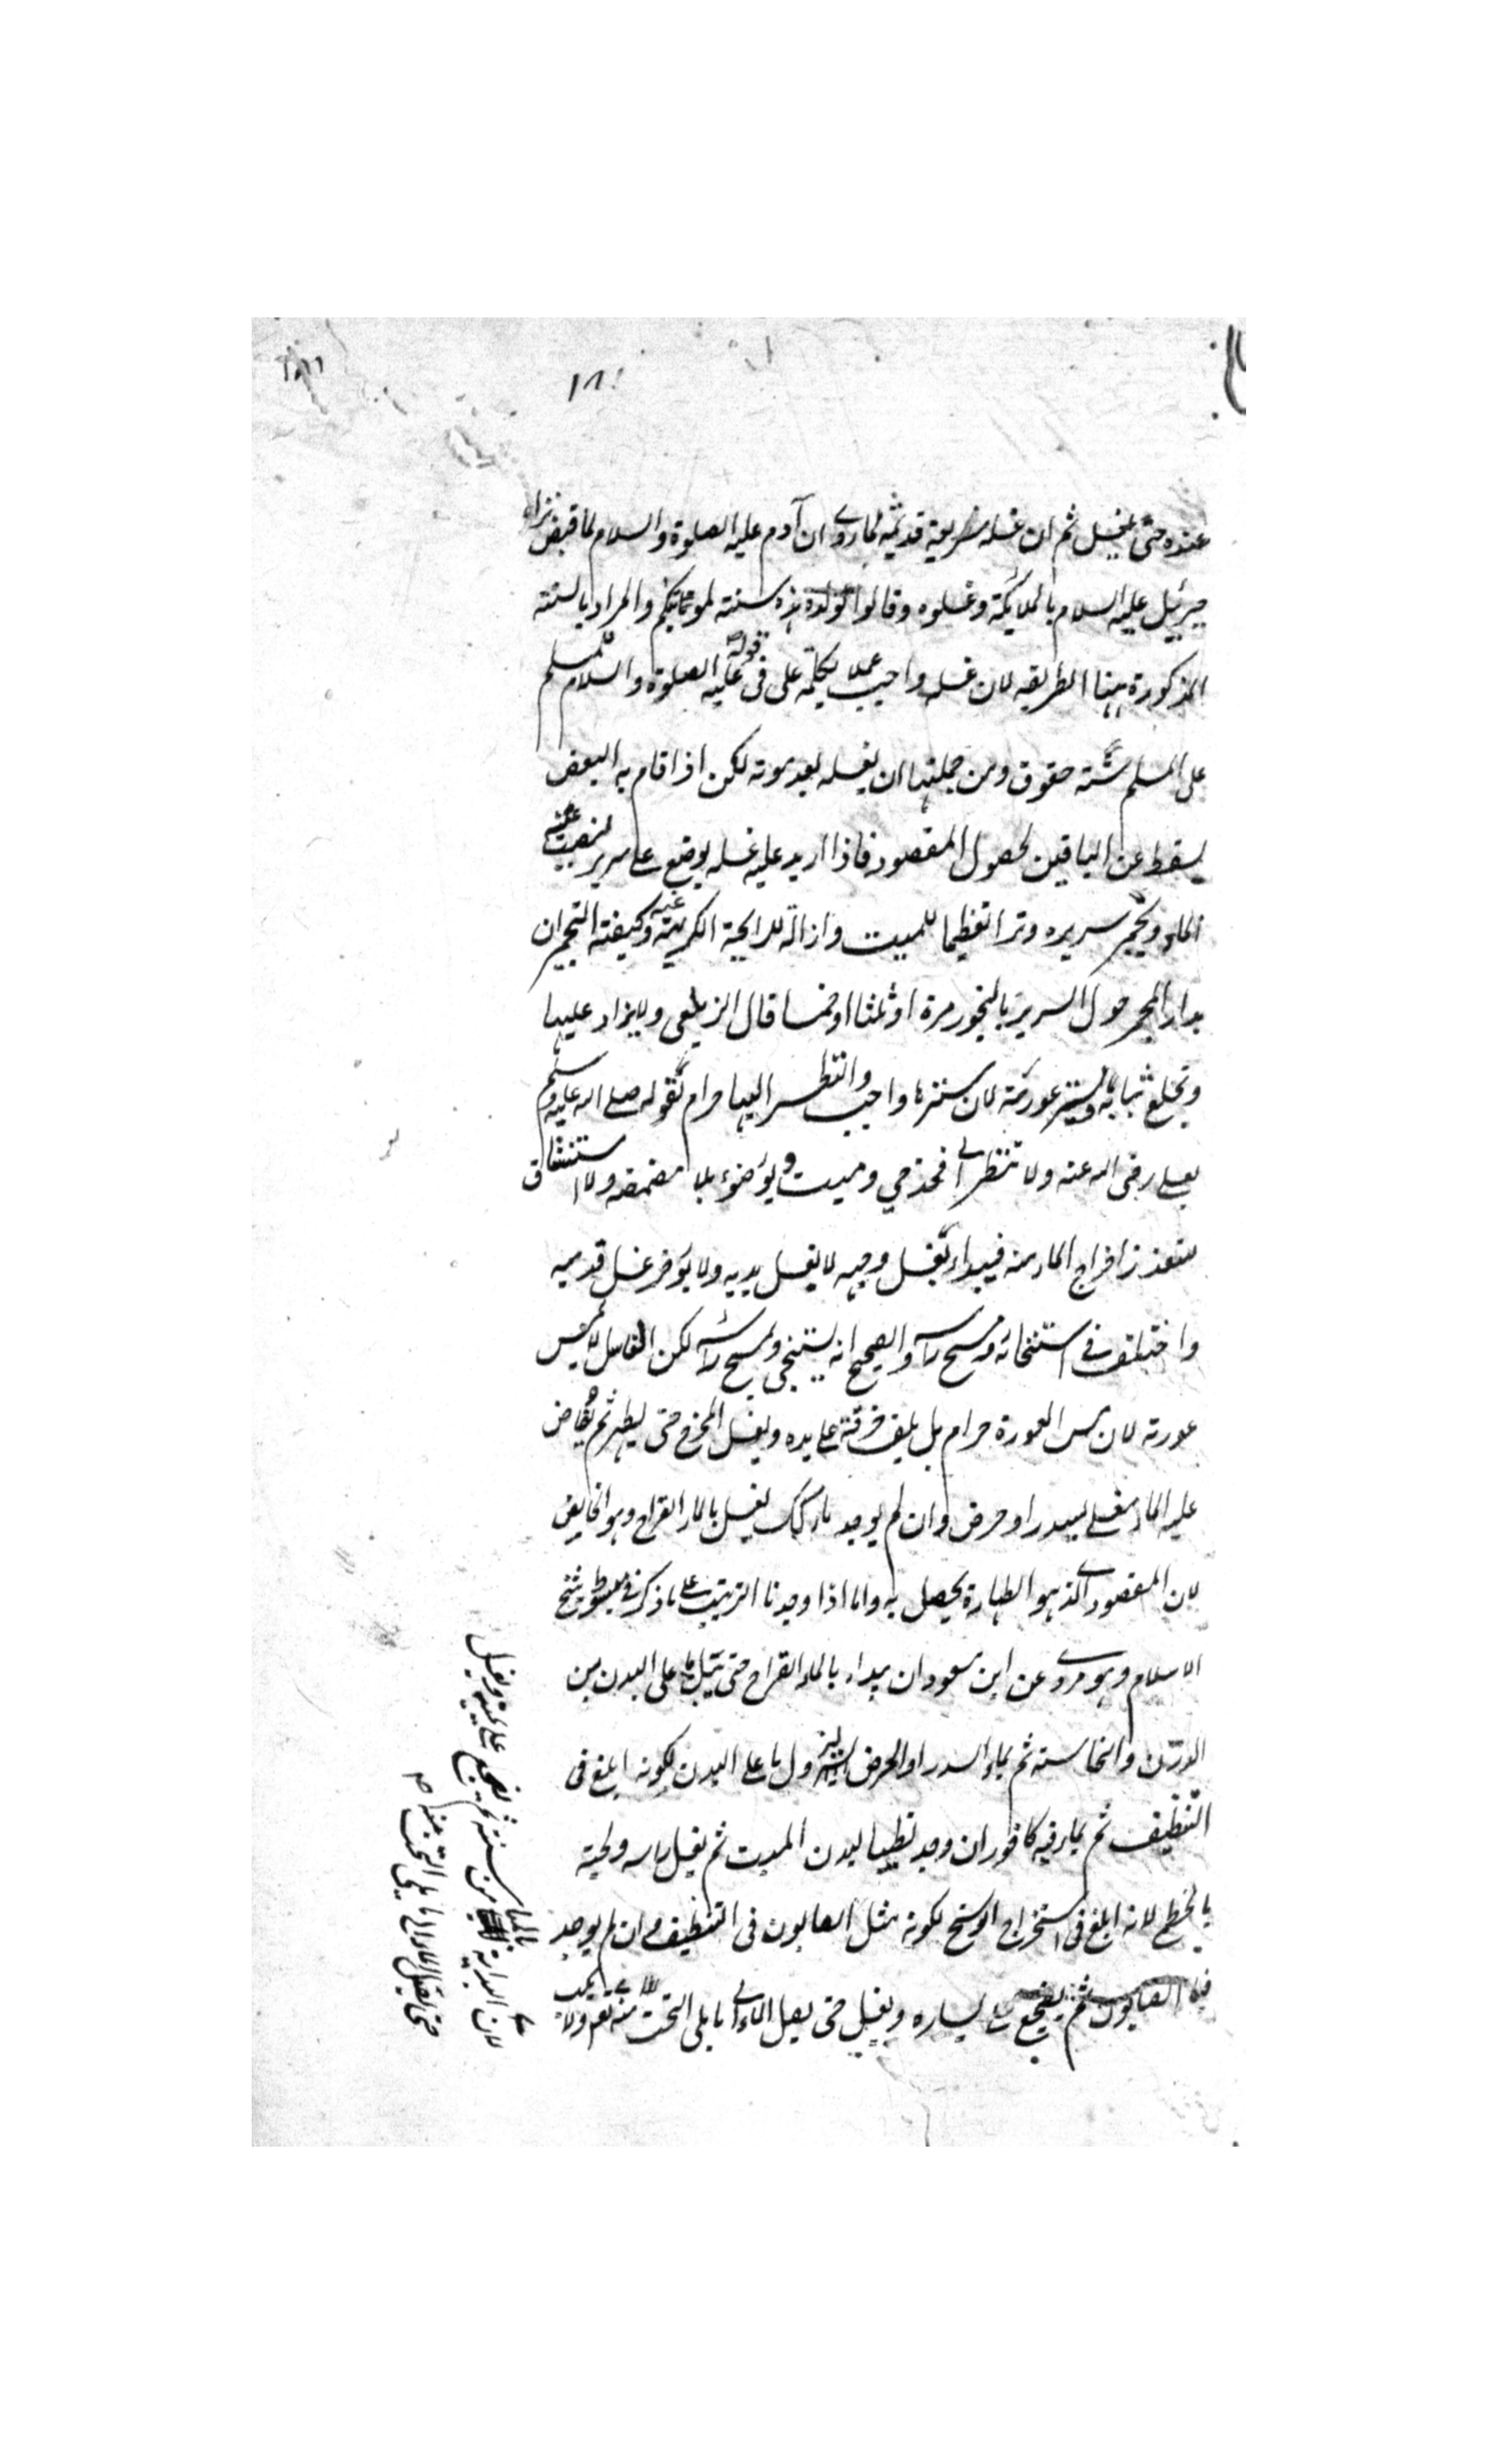 ١٨٠
عنده حتى يغسل ثم ان غسله شريعة قديمة لما روى ان آدم عليه الصلوة والسلام لما قبض نزل
جبرئيل عليه السلام بالملائكة وغسلوه وقالوا لولده هذه سنة لموتاكم والمراد بالسنة
المذكورة ههنا الطريقه لان غسله واجب عملا بكلمة على فى قوله عليه الصلوة والسلام للمسلم
على المسلم ستة حقوق ومن جملتها ان يغسله بعد موته لكن اذا قام به البعض
يسقط عن الباقين لحصول المقصود فاذا اريد عليه غسله يوضع على سرير لينصب عنه
الماء ويجمر سريره وترا تعظيما للميت وازالة للرايحة الكريهة عنه وكيفته التجمير ان
يدار المجمر حول السرير بالبخور مرة او ثلثا او خمسا قال الزيلعى ولا يزاد عليها
ويخلع ثيابه ويستر عورته لان سترها واجب والنظر اليها حرام لقوله صلى الله عليه وسلم
لعلى رضى الله عنه ولا تنظر الى فخذ حي وميت ويوضوء بلا مضمضه ولا استنشاق
لتعذر اخراج الماء منه فيبداء بغسل وجهه لا يغسل يديه ولا يؤخر غسل قدميه
واختلف فى استنجائه ومسح راسه والصحيح انه يستنجى ويمسح راسه لكن الغاسل لا يمس
عورته لان مس العورة حرام بل يلف خرقة على يده ويغسل المخرج حتى يطهر ثم يفاض
عليه الماء مغلى بسدر او حرض وان لم يوجد ذلك يغسل بالماء القراح وهو الخالص
لان المقصود الذى هو الطهارة يحصل به واما اذا وجدنا الترتيب على ما ذكر فى مبسوط شيخ
الاسلام وهو مروى عن ابن مسعود ان يبداء بالماء القراح حتى يبتل ما على البدن من
الدرن والنجاسة ثم بماء السدر او الحرض ليزول ما على البدن لكونه ابلغ فى
التنظيف ثم بماء فيه كافور ان وجد تطييبا لبدن الميت ثم يغسل راسه ولحيته
بالخطمى لانه ابلغ فى استخراج الوسخ لكونه مثل الصابون فى التنظيف وان لم يوجد
فبالصابون ثم يضجع على يساره ويغسل حتى يصل الماء الى ما يلى التخت منه
لان البداية بالميامن سنة ثم يضجع على يمينه ويغسل
حتى يصل الماء الى ما يلى التخت منه صح